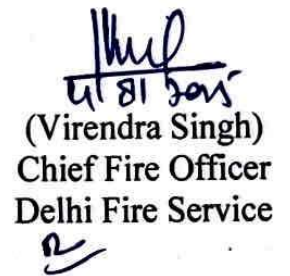 (Virendra Singh)
Chief Fire Officer
Delhi Fire Service